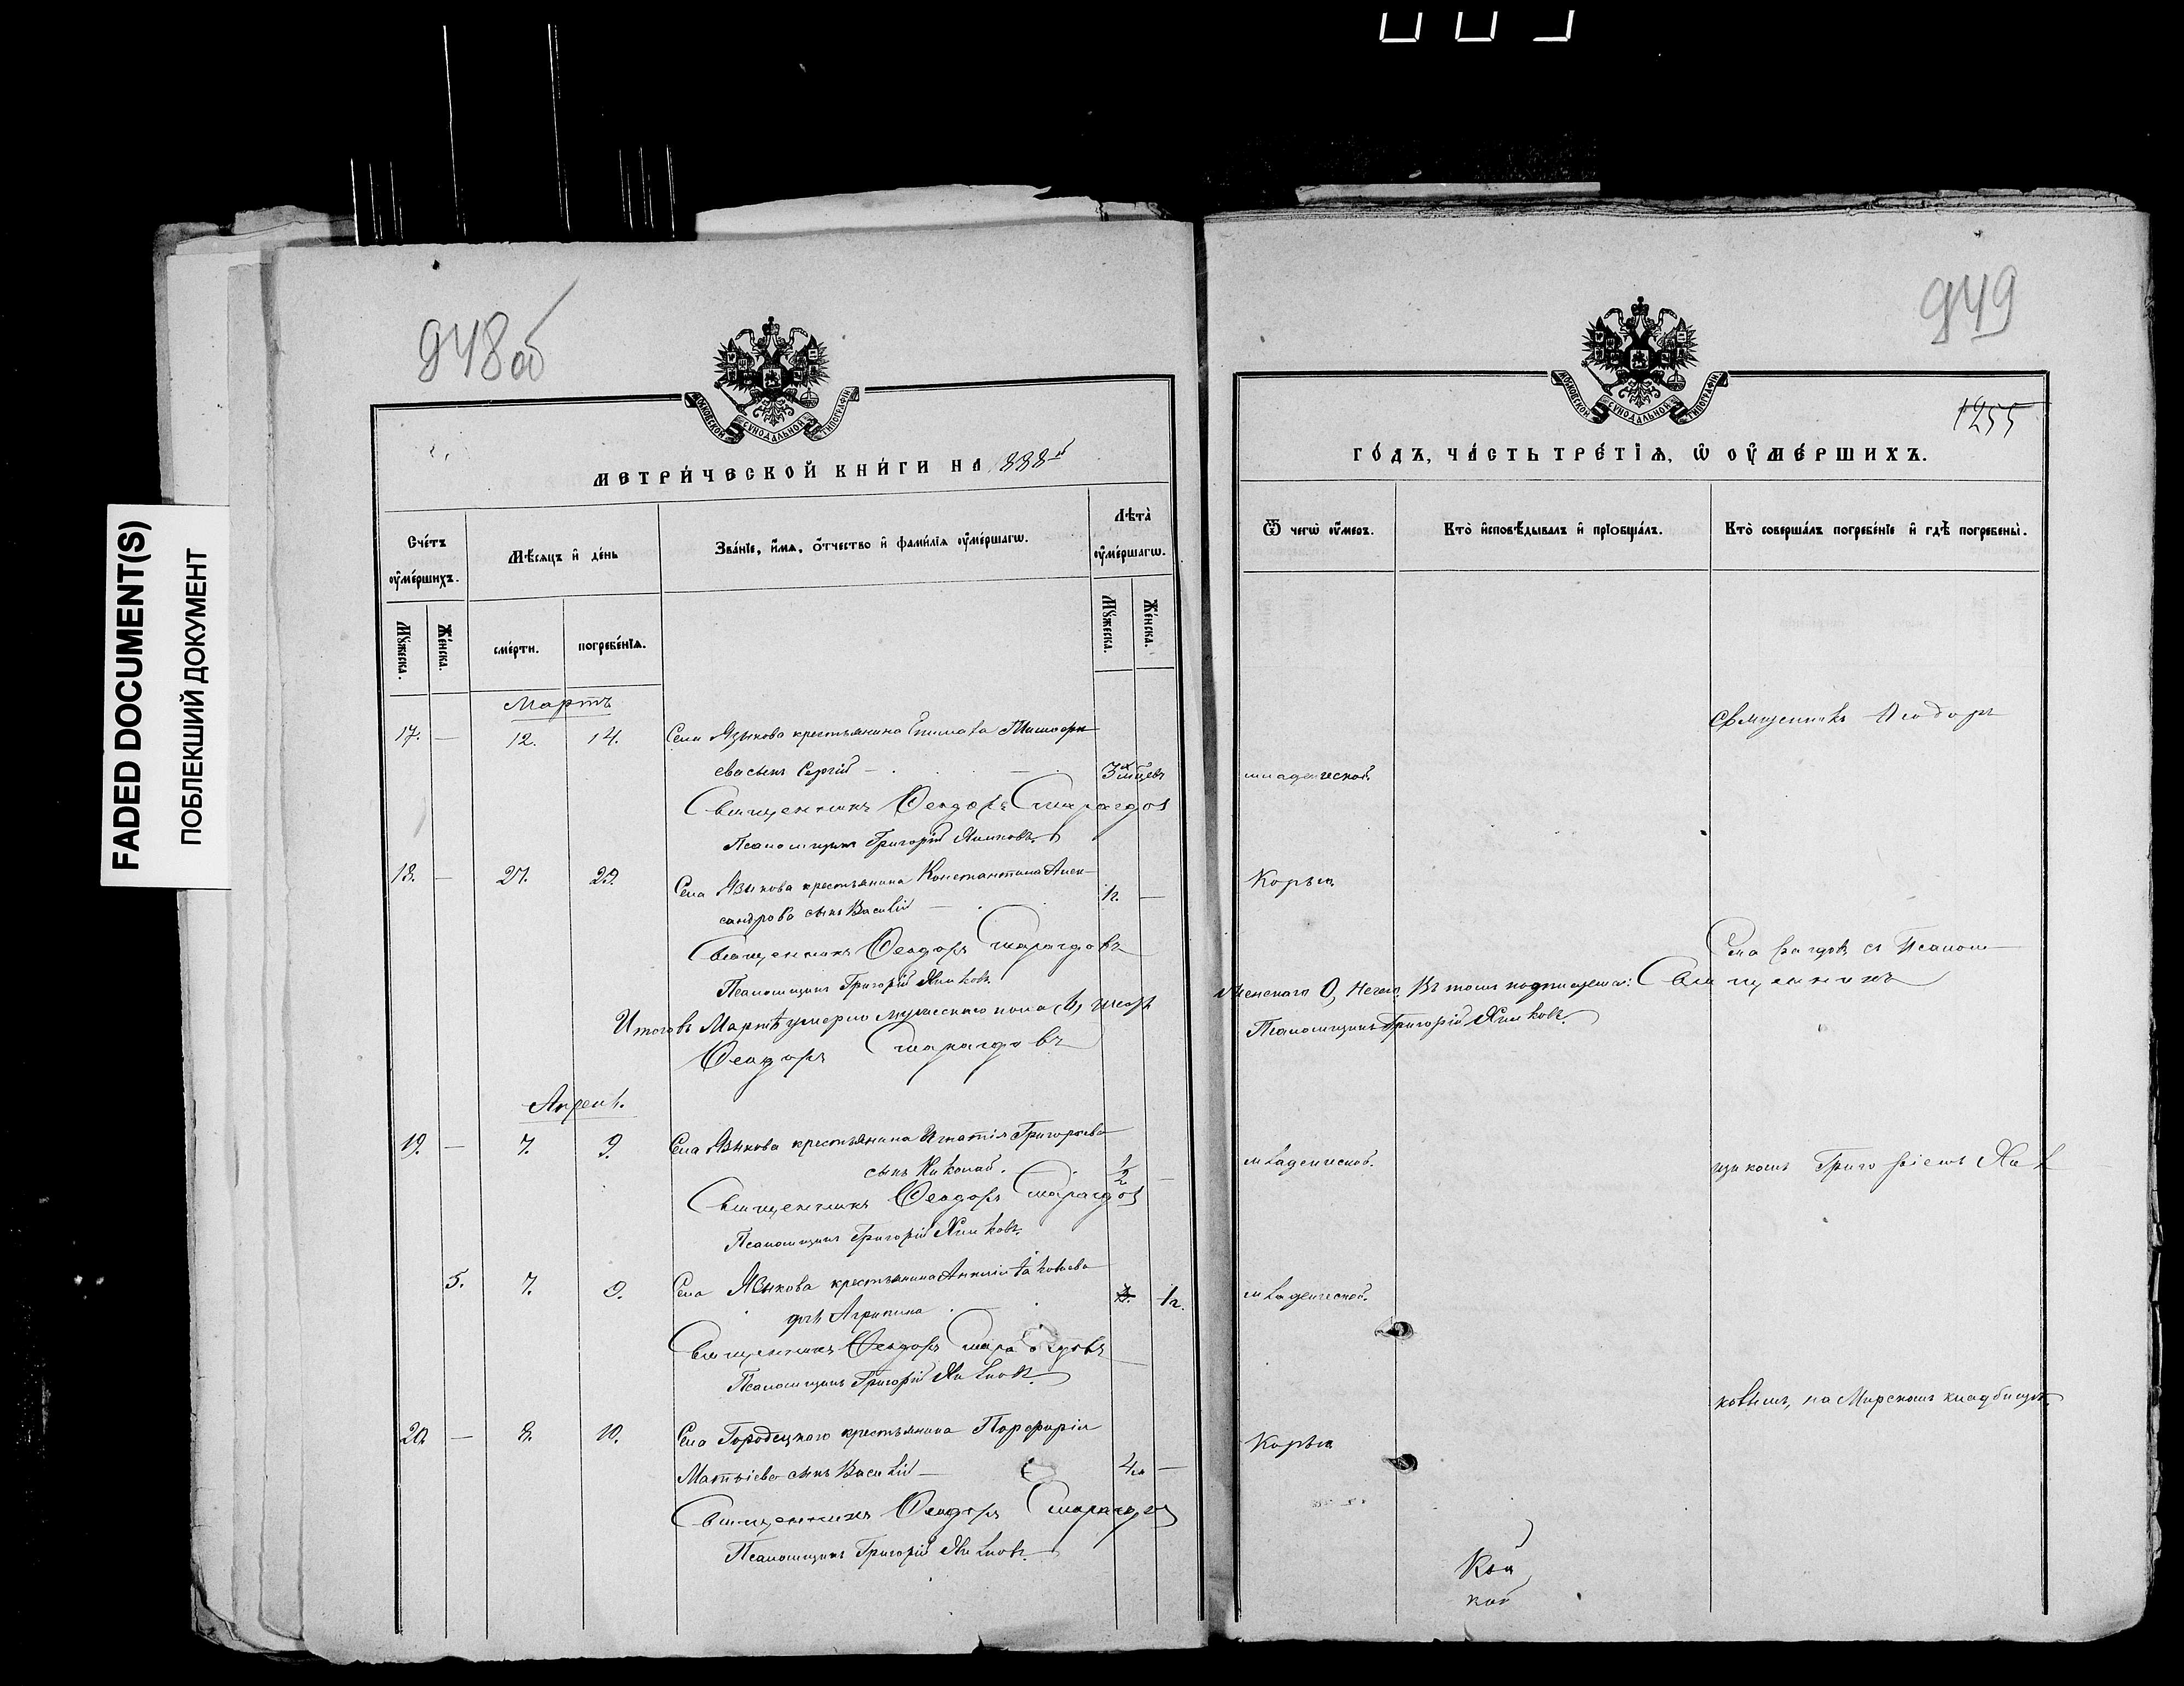 FADED DOCUMENT(S)
ПОБЛЕКШИЙ ДОКУМЕНТ
948об
МОСКОВСКОЙ СѴНОДАЛЬНОЙ ТИПОГРАФІИ
МЕТРИ́ЧЕСКОЙ КНИ́ГИ НА 1888й
Сче́тъ оу҆ме́ршихъ.
Мѣ́сяцъ и҆ де́нь
Зва́нїе, и҆́мѧ, ѻ҆́тчество и҆ фами́лїѧ оу҆ме́ршагѡ.
Лѣта̀ оу҆ме́ршагѡ.
Мꙋ́жеска.
Же́нска.
сме́рти.
погребе́нїѧ.
Мꙋ́жеска.
Же́нска.
Мартъ
17. — 12. 14. Села Языкова крестьянина
ева сынъ Сергій — 3х мѣсцевъ
Священникъ Ѳеодоръ Смарагдов
Псаломщикъ Григорій Хилковъ
18. — 27. 29. Села Языкова крестьянина Константина Алек-
сандрова сынъ Василій — 1г. —
Священникъ Ѳеодоръ Смарагдовъ
Псаломщикъ Григорій Хилковъ.
Итого въ Мартѣ умерло мужескаго пола
Ѳеодоръ Смарагдовъ
Апрель.
19. — 7. 9. Села Языкова крестьянина Игнатія Григорьева
сынъ Николай. 1/2 —
Священникъ Ѳеодоръ Смарагдов
Псаломщикъ Григорій Хилковъ.
5. 7. 9. Села Языкова крестьянина Яковлева
дочь Агрипина 1г.
Священникъ Ѳеодоръ Смарагдовъ
Псаломщикъ Григорій Хилковъ.
20 — 8. 10. Села Городецкаго крестьянина Порфирія
Матвіева сынъ Василій — 4м —
Священникъ Ѳеодоръ Смарагдов
Псаломщикъ Григорій Хилковъ.
949
1255
МОСКОВСКОЙ СѴНОДАЛЬНОЙ ТИПОГРАФІИ
ГО́ДЪ, ЧА́СТЬ ТРЕ́ТЇѦ, Ѡ҆ ОУ҆МЕ́РШИХЪ.
Ѿ чегѡ̀ оу҆́меръ.
Кто̀ и҆сповѣ́дывалъ и҆ прїѻбща́лъ.
Кто̀ соверша́лъ погребе́нїе и҆ гдѣ̀ погребены̀.
Священникъ Ѳеодоръ
младенческой
Корью
Смарагдовъ съ Псалом
женскаго Въ томъ подписуемся: Священникъ
Псаломщикъ Григорій Хилковъ.
младенческой.
щикомъ Григоріемъ Хил
младенческой.
ковымъ, на Мирскомъ кладбищѣ.
Корью